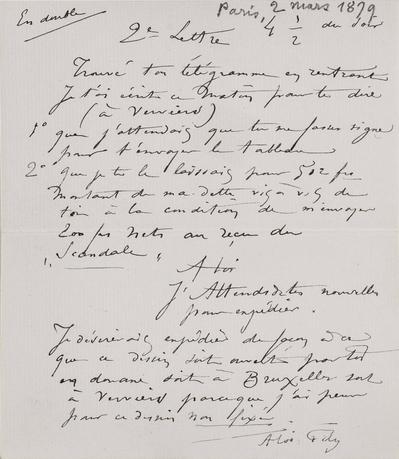 En double
Paris, 2 mars 1879
2e Lettre 4 1/2 du soir
Trouvé ton télégramme en rentrant
Je t'ai écrit ce matin pour te dire
(à Verviers)
1o que j'attendais que tu me fasses signe
pour t'envoyer le tableau
2o que je te le laissais pour 502 frs
Montant de ma dette vis à vis de
toi à la condition de m'envoyer
200 frs nets au reçu du
"Scandale"
A toi
J'Attends des nouvelles
pour expédier.
Je désirerais expédier de façon à ce
que ce dessin soit ouvert par toi
en douane, soit à Bruxelles soit
à Verviers parceque j'ai peur
pour ce dessin non fixé.
A toi